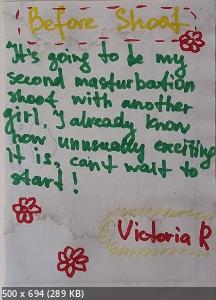 Before Shoot
"It's going to be my
second masturbation
shoot with another
girl. I already know
how unusually exciting
it is, can't wait to
start!
Victoria R
500 x 694 (289 KB)